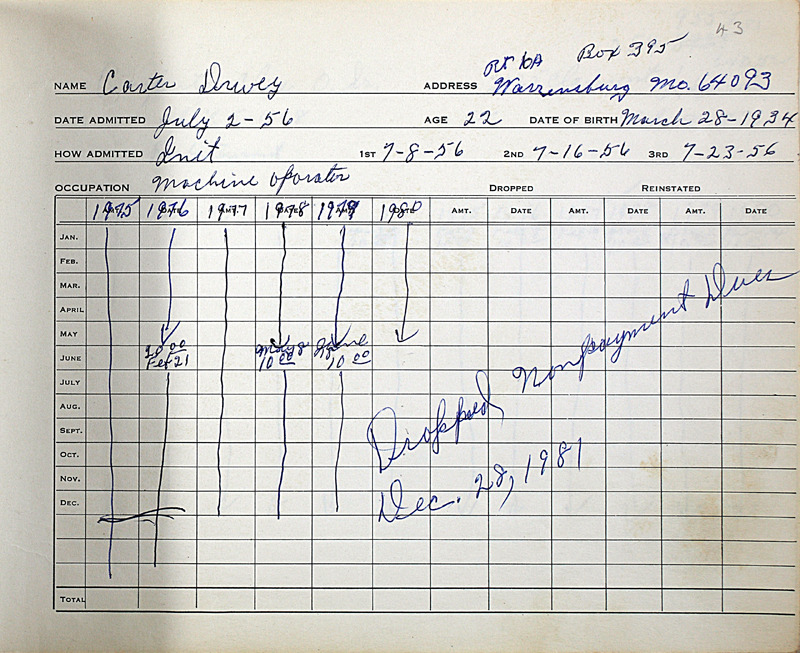 43
Rt 10A Box 395
NAME Carter Drwey ADDRESS Warrensburg Mo. 64093
DATE ADMITTED July 2-56 AGE 22 DATE OF BIRTH March 28-1934
HOW ADMITTED Init 1ST 7-8-56 2ND 7-16-56 3RD 7-23-56
OCCUPATION Machine oporator DROPPED REINSTATED
1975 1976 1977 1978 1979 1980 AMT. DATE AMT. DATE AMT. DATE
JAN.
FEB.
MAR.
APRIL
MAY
JUNE 20 00 Feb 21 May 8 10 00 June 10 00
JULY
AUG.
SEPT.
OCT.
NOV.
DEC.
TOTAL
Dropped Nonpayment Dues
Dec. 28, 1981